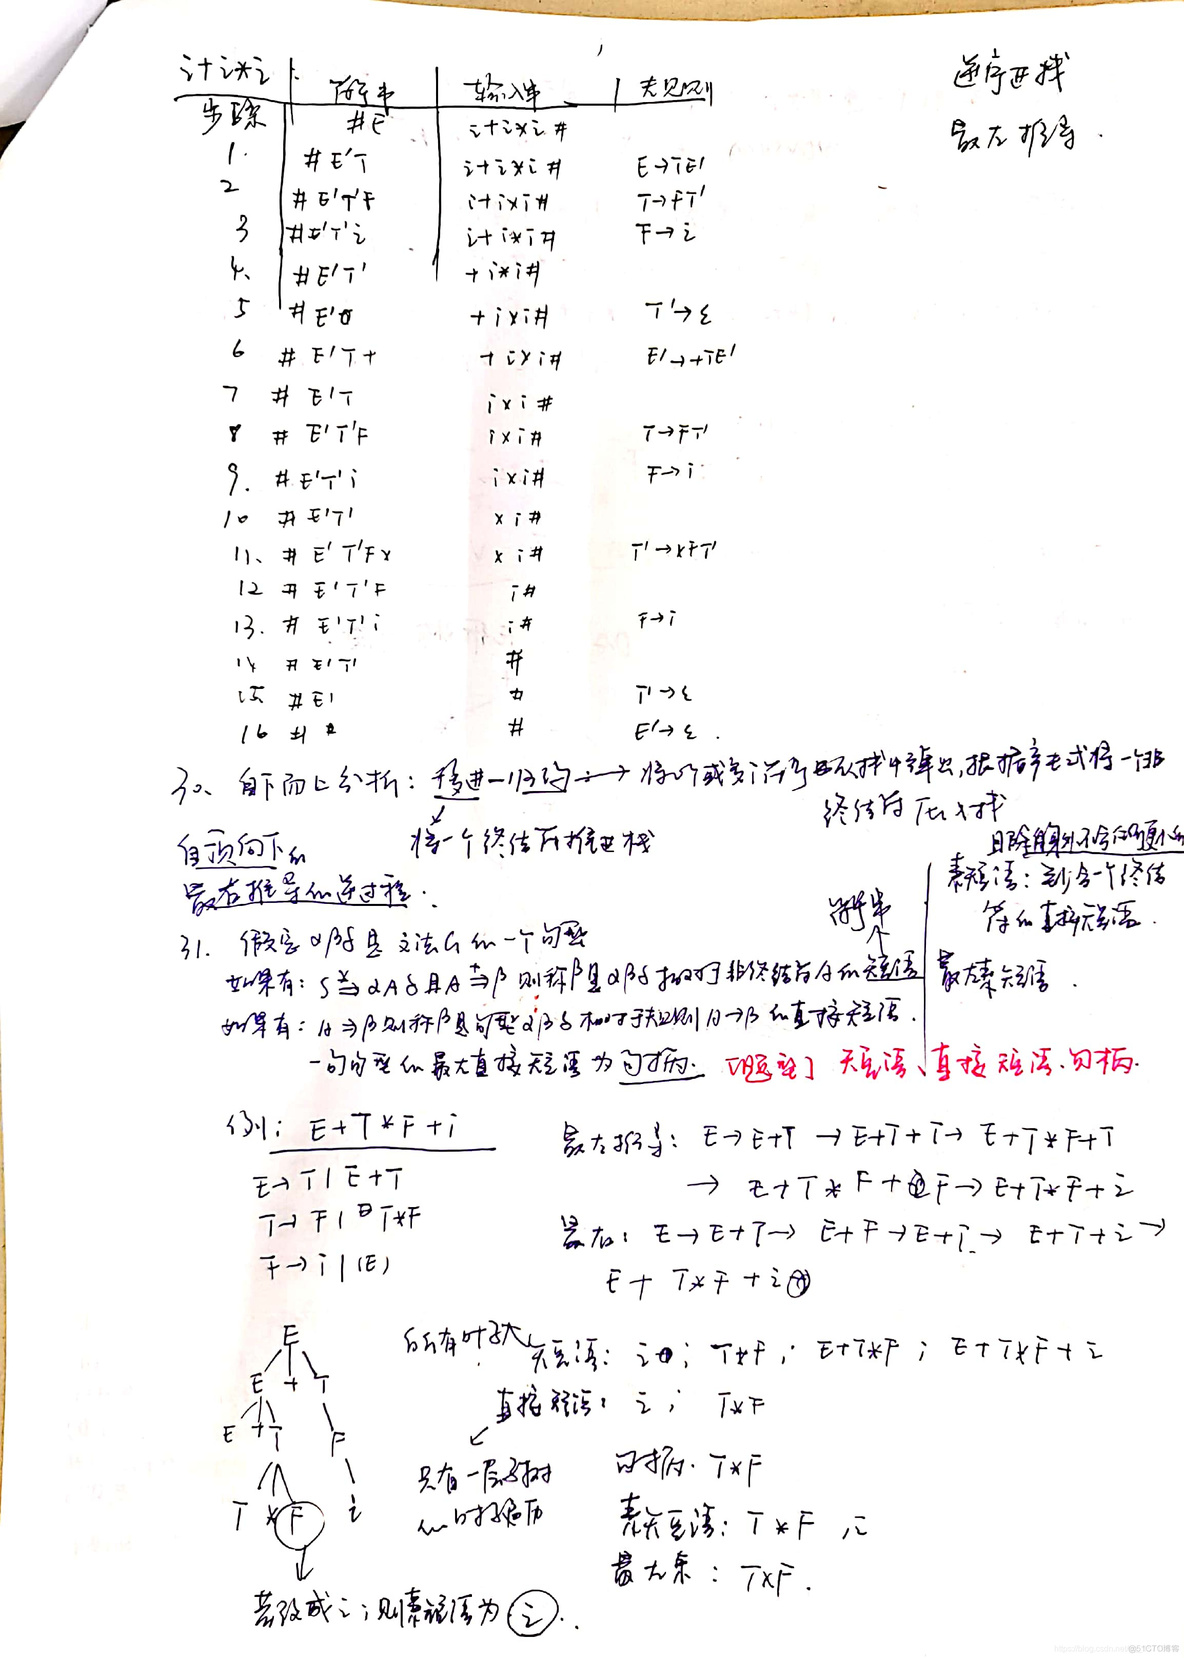 i+i*i
步骤 符号串 输入串 规则
逆序进栈
最左推导.
#E i+i×i#
1. #E'T i+i×i# E→TE'
2 #E'T'F i+i×i# T→FT'
3 #E'T'i i+i*i# F→i
4. #E'T' +i*i#
5 #E' +i×i# T'→ε
6 #E'T+ +i×i# E'→+TE'
7 #E'T i×i#
8 #E'T'F i×i# T→FT'
9. #E'T'i i×i# F→i
10 #E'T' ×i#
11. #E'T'F× ×i# T'→×FT'
12 #E'T'F i#
13. #E'T'i i# F→i
14 #E'T' #
15 #E' # T'→ε
16 # # E'→ε.
30、自下而上分析：移进—归约 → 将1个或多个符号从栈中弹出,根据产生式将一个非
终结符压入栈
将一个终结符推进栈
自顶向下的
最右推导的逆过程.
且除自身外不含
素短语：至少含一个终结
符的直接短语.
符号串
最左素短语.
31. 假定αβδ是文法G的一个句型
如果有：S*⇒αAδ且A+⇒β 则称β是αβδ相对于非终结符A的短语
如果有：A⇒β则称β是句型αβδ相对于规则A→β的直接短语.
一句句型的最左直接短语为句柄. [题型] 短语、直接短语.句柄.
例: E+T*F+i
E→T|E+T
T→F|T*F
F→i|(E)
最左推导: E→E+T→E+T+T→E+T*F+T
→E+T*F+F→E+T*F+i
最右: E→E+T→E+F→E+i→E+T+i→
E+T*F+i
E
E + T
E + T F
T * F i
所有叶子
短语: i; T*F; E+T*F; E+T*F+i
直接短语: i; T*F
只有一层子树
的叶子遍历
句柄. T*F
素短语: T*F ,i
最左素: T×F.
若改成i,则素短语为i.
https://blog.csdn.net @51CTO博客